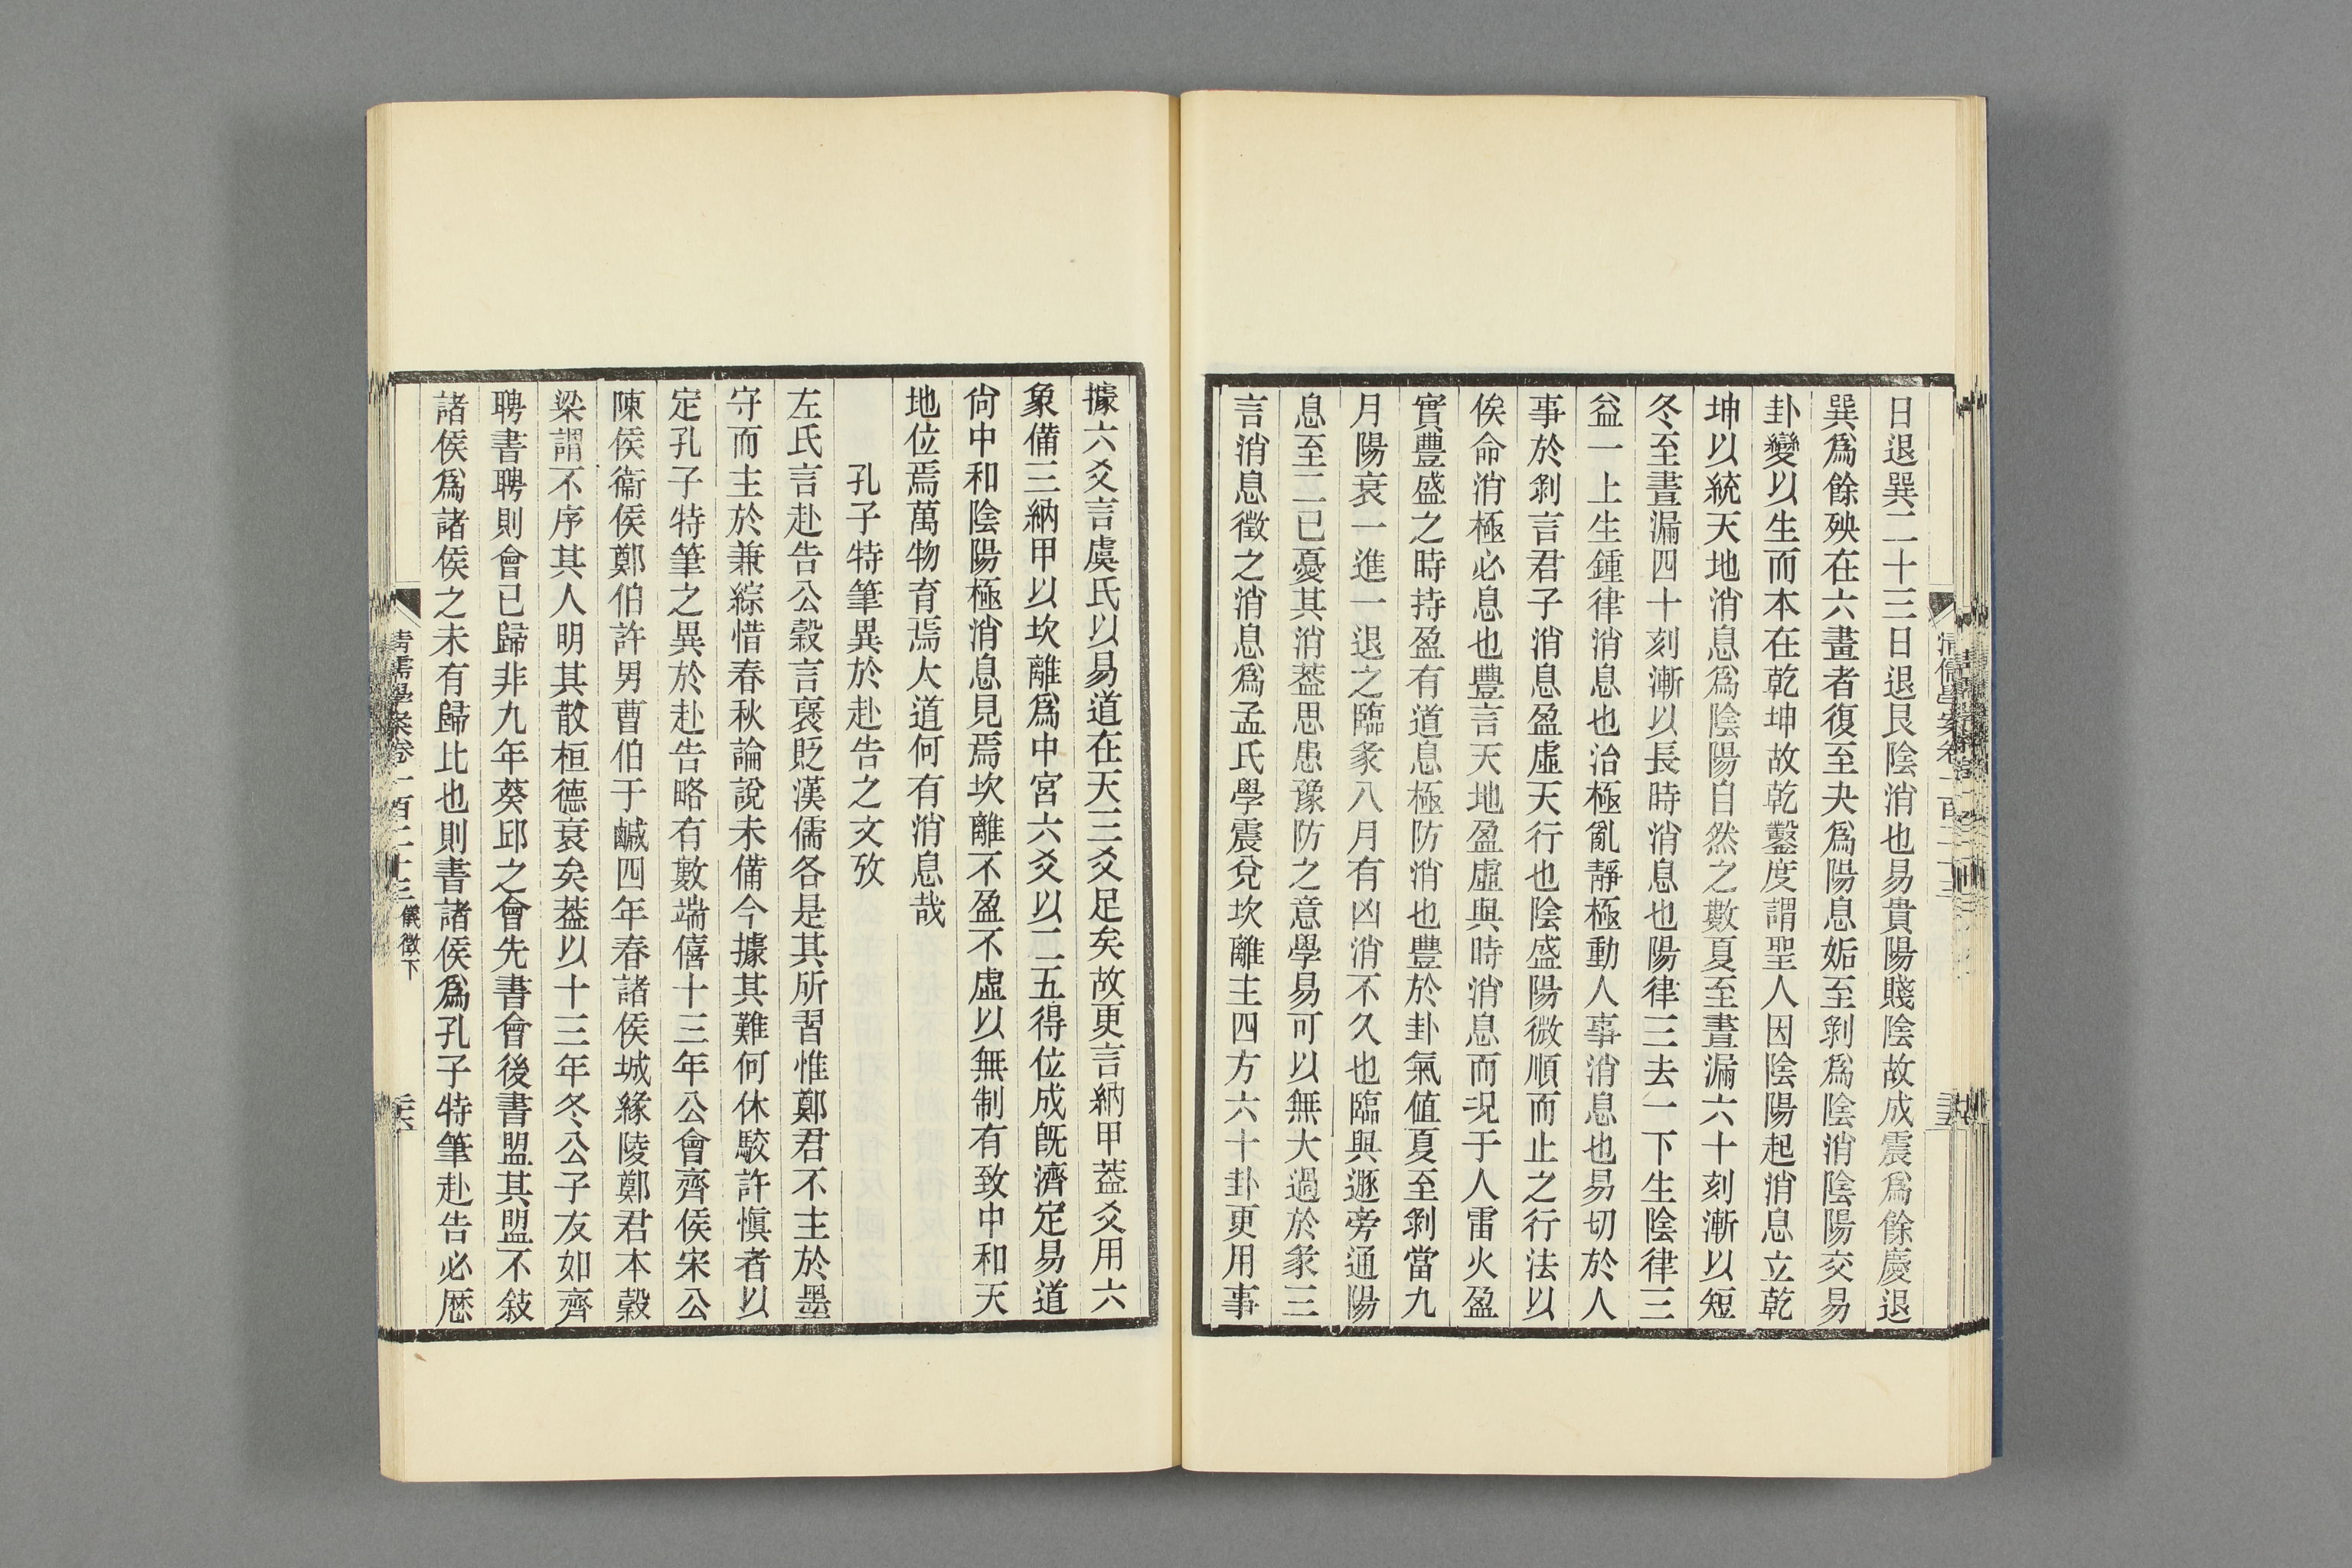 日退巽二十三日退艮陰消也易貴陽賤陰故成震爲餘慶退
巽爲餘殃在六畫者復至夬爲陽息姤至剝爲陰消陰陽交易
卦變以生而本在乾坤故乾鑿度謂聖人因陰陽起消息立乾
坤以統天地消息爲陰陽自然之數夏至晝漏六十刻漸以短
冬至晝漏四十刻漸以長時消息也陽律三去一下生陰律三
益一上生鍾律消息也治極亂靜極動人事消息也易切於人
事於剝言君子消息盈虛天行也陰盛陽微順而止之行法以
俟命消極必息也豐言天地盈虛與時消息而況于人雷火盈
實豐盛之時持盈有道息極防消也豐於卦氣值夏至剝當九
月陽衰一進一退之臨彖八月有凶消不久也臨與遯旁通陽
息至二已憂其消葢思患豫防之意學易可以無大過於彖三
言消息徵之消息爲孟氏學震兌坎離主四方六十卦更用事
據六爻言虞氏以易道在天三爻足矣故更言納甲葢爻用六
象備三納甲以坎離爲中宮六爻以二五得位成旣濟定易道
尙中和陰陽極消息見焉坎離不盈不虛以無制有致中和天
地位焉萬物育焉大道何有消息哉
孔子特筆異於赴告之文攷
左氏言赴告公穀言襃貶漢儒各是其所習惟鄭君不主於墨
守而主於兼綜惜春秋論說未備今據其難何休駮許愼者以
定孔子特筆之異於赴告略有數端僖十三年公會齊侯宋公
陳侯衞侯鄭伯許男曹伯于鹹四年春諸侯城緣陵鄭君本穀
梁謂不序其人明其散桓德衰矣葢以十三年冬公子友如齊
聘書聘則會已歸非九年葵邱之會先書會後書盟其盟不敍
諸侯爲諸侯之未有歸比也則書諸侯爲孔子特筆赴告必歷
清儒學案卷一百二十三 儀徵下